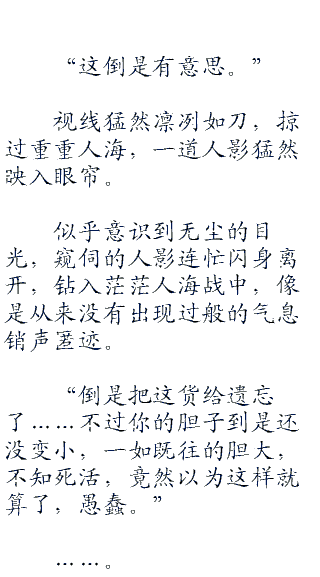 “这倒是有意思。”
视线猛然凛冽如刀，掠
过重重人海，一道人影猛然
映入眼帘。
似乎意识到无尘的目
光，窥伺的人影连忙闪身离
开，钻入茫茫人海战中，像
是从来没有出现过般的气息
销声匿迹。
“倒是把这货给遗忘
了……不过你的胆子到是还
没变小，一如既往的胆大，
不知死活，竟然以为这样就
算了，愚蠢。”
……。